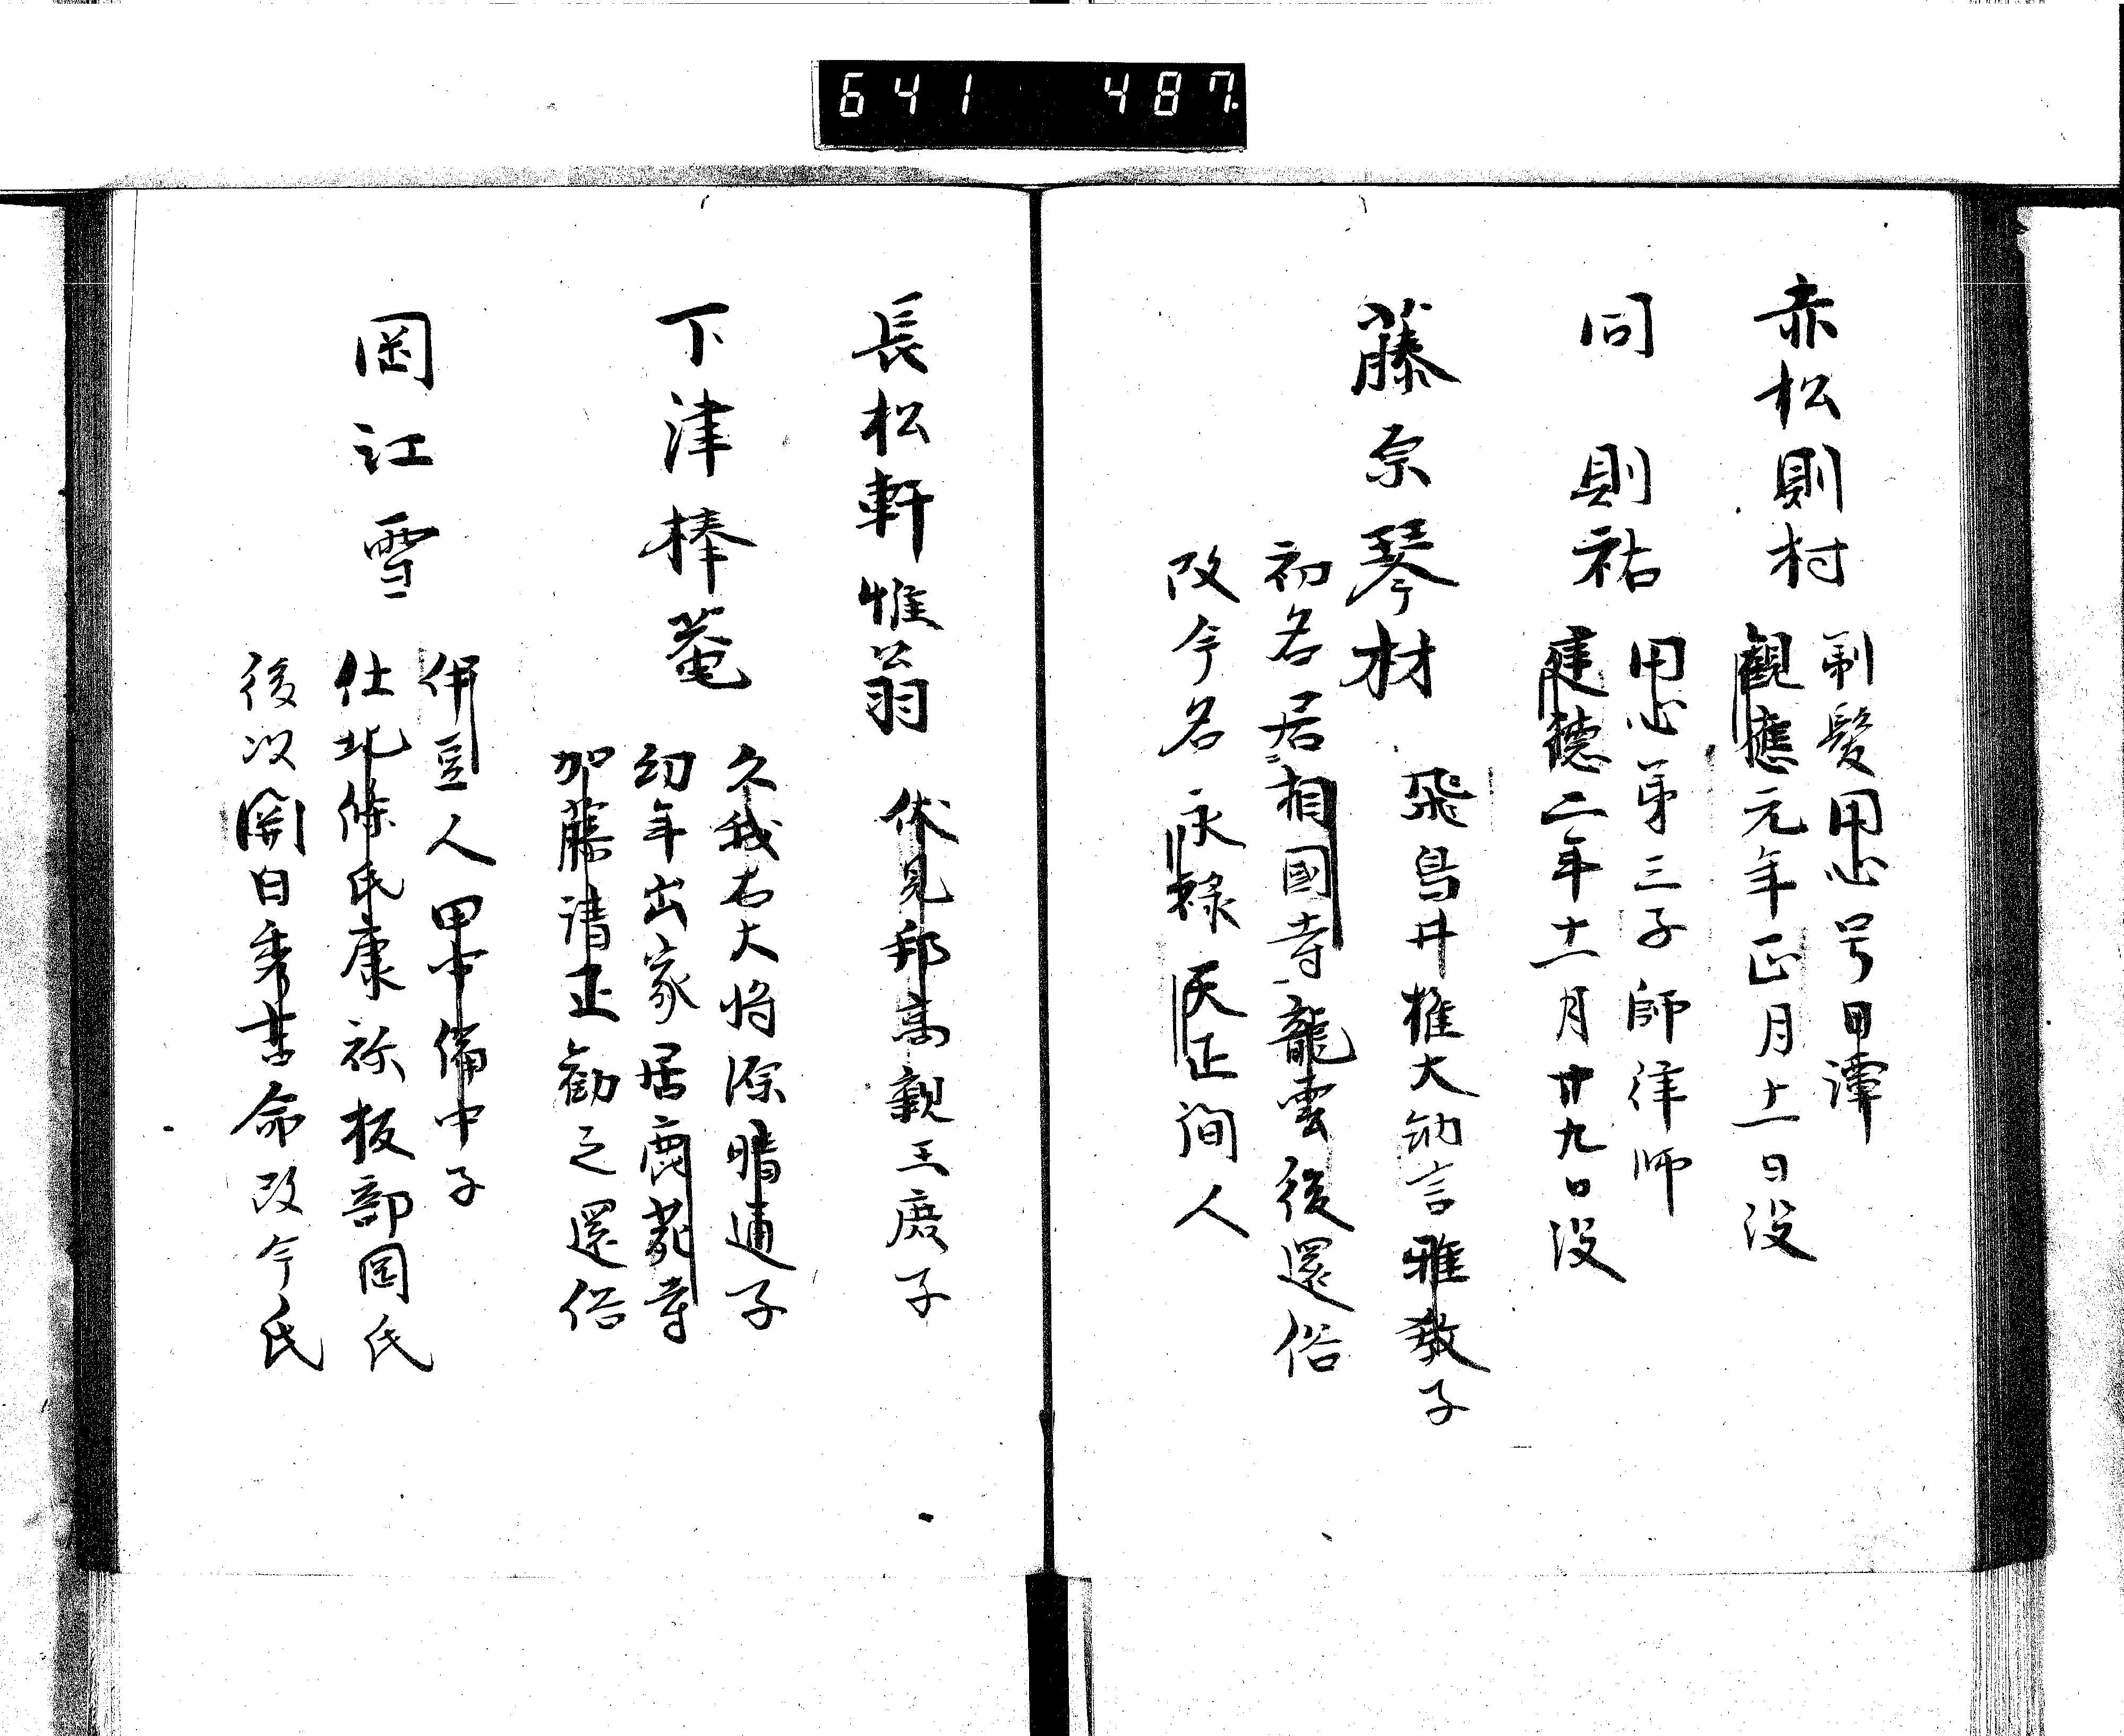 641 487
赤松則村
剃髪円心号月潭
観應元年正月十一日没
同 則祐
円心第三子師律師
建德二年十一月廿九日没
藤原琴材
飛鳥井權大納言雅教子
初名居相國寺龍雲後還俗
改今名永禄天正間人
長松軒惟翁
伏見邦高親王庶子
下津棒菴
久我右大将源晴通子
幼年出家居鹿苑寺
加藤清正勧之還俗
岡江雪
伊豆人 田中備中子
仕北條氏康称板部岡氏
後以関白秀吉命改今氏